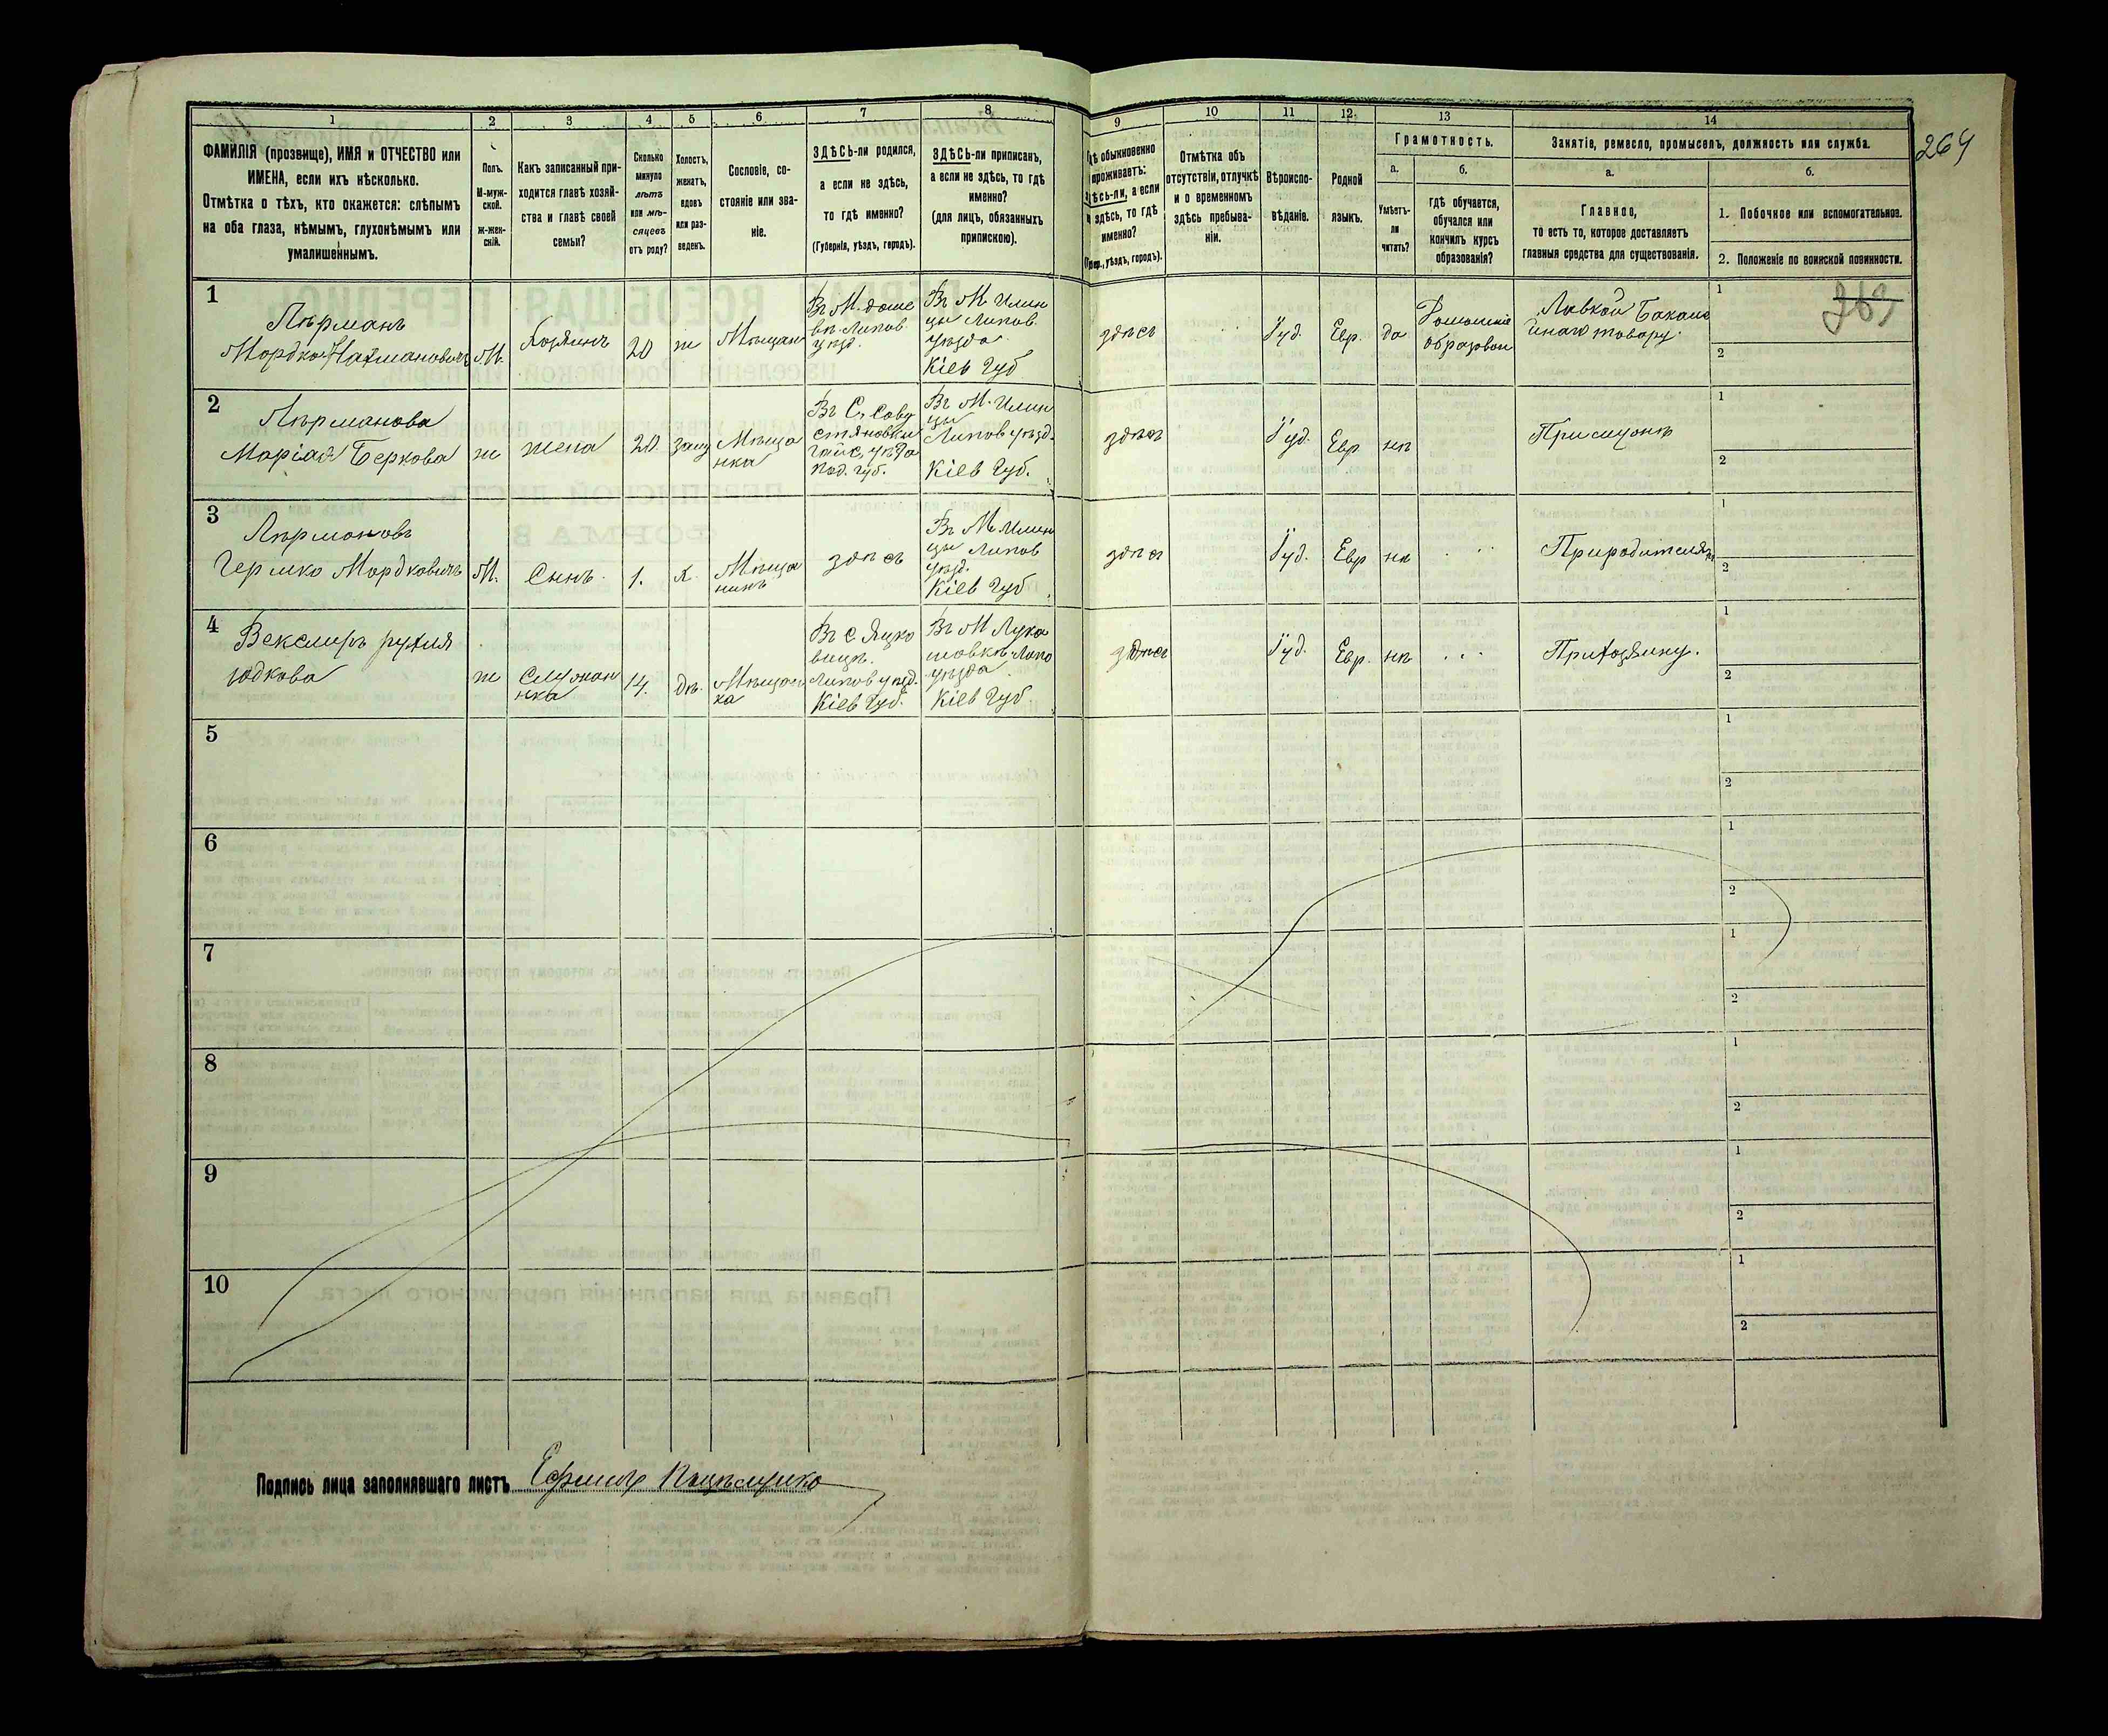 1 2 3 4 5 6 7 8 9 10 11 12 13 14
264
ФАМИЛІЯ (прозвище), ИМЯ и ОТЧЕСТВО или
ИМЕНА, если ихъ нѣсколько.
Отмѣтка о тѣхъ, кто окажется: слѣпымъ
на оба глаза, нѣмымъ, глухонѣмымъ или
умалишеннымъ.
Полъ.
М-муж-
ской.
Ж-жен-
скій.
Какъ записанный при-
ходится главѣ хозяй-
ства и главѣ своей
семьи?
Сколько
минуло
лѣтъ
или мѣ-
сяцевъ
отъ роду?
Холостъ,
женатъ,
вдовъ
или раз-
веденъ.
Сословіе, со-
стояніе или зва-
ніе.
ЗДѢСЬ-ли родился,
а если не здѣсь,
то гдѣ именно?
(Губернія, уѣздъ, городъ).
ЗДѢСЬ-ли приписанъ,
а если не здѣсь, то гдѣ
именно?
(для лицъ, обязанныхъ
припискою).
обыкновенно
проживаетъ:
а если
здѣсь, то гдѣ
именно?
уѣздъ, городъ).
Отмѣтка объ
отсутствіи, отлучкѣ
и о временномъ
здѣсь пребыва-
ніи.
Вѣроиспо-
вѣданіе.
Родной
языкъ.
Грамотность.
а.
Умѣетъ-
ли
читать?
б.
гдѣ обучается,
обучался или
кончилъ курсъ
образованія?
Занятіе, ремесло, промыселъ, должность или служба.
а.
Главное,
то есть то, которое доставляетъ
главныя средства для существованія.
б.
1. Побочное или вспомогательное.
2. Положеніе по воинской повинности.
1
Лѣрманъ
Мордко Нахмановичъ
М.
Хозяинъ
20
ж
Мѣщан
Въ М.
Липов.
уѣзд.
Въ М Илин
цы Липов.
уѣзда
Кіев Губ
здѣсь
Іуд.
Евр.
да
Домашнее
образован
Лавкой Бакале
йнаго товару.
1
2
2
Лѣрманова
Марія Беркова
ж
жена
20
зам
Мѣща
нка
Въ С.
уѣзда
Под. Губ.
Въ М. Илин
цы
Липов уѣзд.
Кіев Губ.
здѣсь
Іуд.
Евр
нѣ
При мужѣ
1
2
3
Лѣрмановъ
Гершко Мордковичъ
М.
Сынъ
1.
х.
Мѣща
нинъ
здѣсь
Въ М Илин
цы Липов
уѣзд.
Кіев Губ
здѣсь
Іуд.
Евр
нѣ
При родителяхъ
1
2
4
Векслеръ рухля
юдкова
ж
Служан
нка
14.
дѣ.
Мѣщан
ка
Въ с Яцко
вицѣ.
Липов уѣзд.
Кіев Губ.
Въ М Лука
шовкѣ Липо
уѣзда
Кіев Губ
здѣсь
Іуд.
Евр.
нѣ
При хозяину.
1
2
5
1
2
6
1
2
7
1
2
8
1
2
9
1
2
10
1
2
Подпись лица заполнявшаго листъ